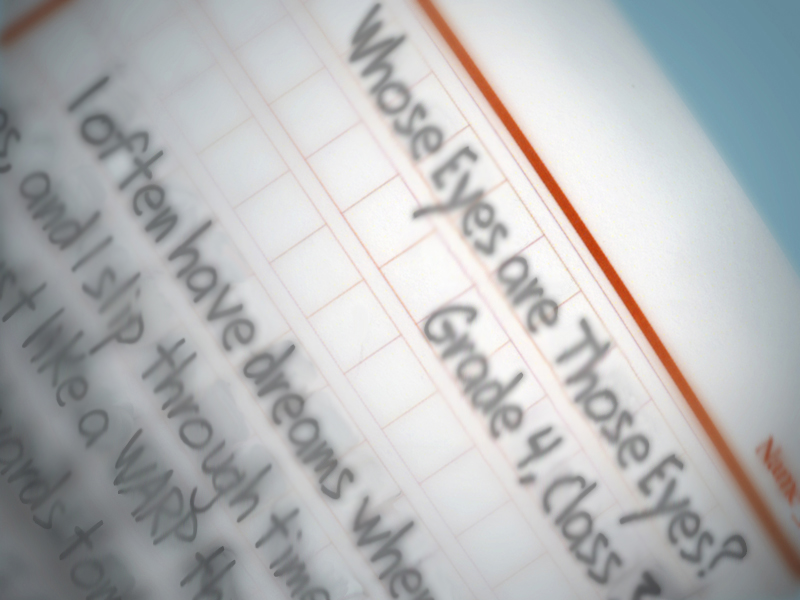 Whose Eyes are Those Eyes?
Grade 4, Class 3
I often have dreams when
and I slip through time
like a WARP